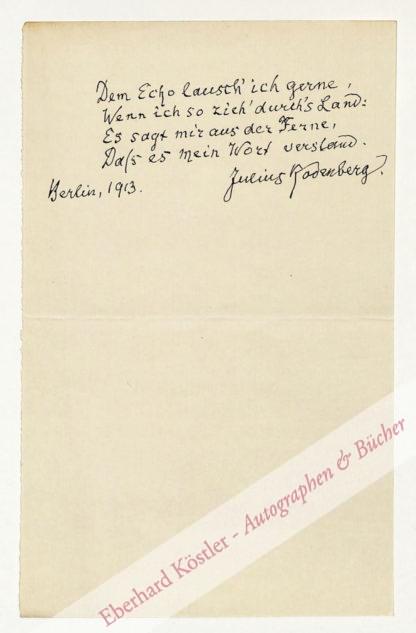 Dem Echo lausch' ich gerne,
Wenn ich so zieh' durch's Land:
Es sagt mir aus der Ferne,
Daſs es mein Wort verstand.
Berlin, 1913.
Julius Rodenberg.
Eberhard Köstler - Autographen & Bücher